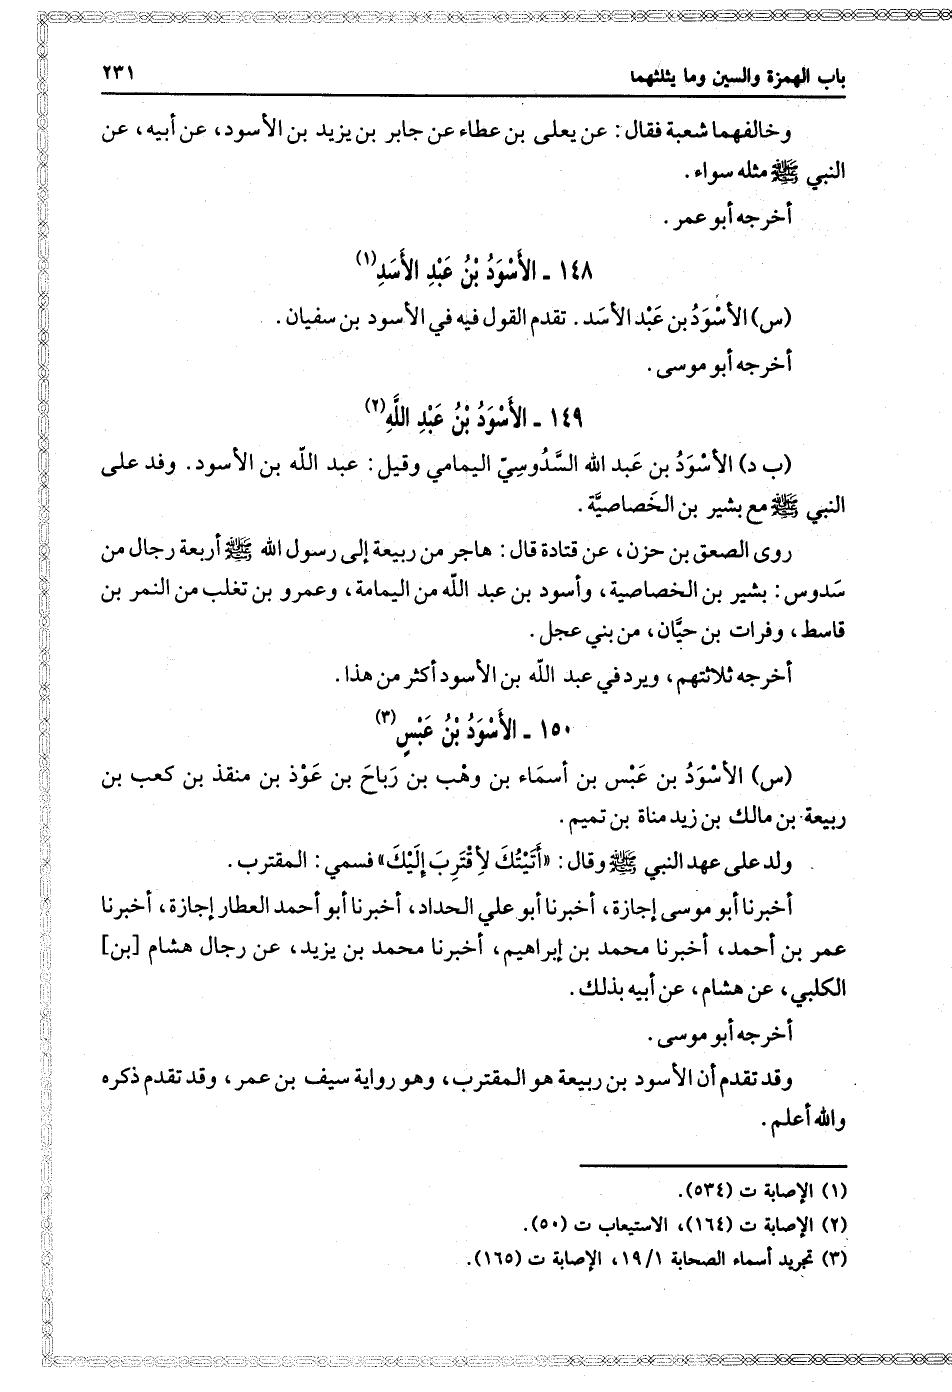 باب الهمزة والسين وما يثلثهما ٢٣١
وخالفهما شعبة فقال: عن يعلى بن عطاء عن جابر بن يزيد بن الأسود، عن أبيه، عن
النبي ﷺ مثله سواء.
أخرجه أبو عمر.
١٤٨ ـ الأَسْوَدُ بْنُ عَبْدِ الأَسَدِ(١)
(س) الأسْوَدُ بن عَبْد الأسَد. تقدم القول فيه في الأسود بن سفيان.
أخرجه أبو موسى.
١٤٩ ـ الأَسْوَدُ بْنُ عَبْدِ اللَّهِ(٢)
(ب د) الأسْوَدُ بن عَبد الله السَّدُوسِيّ اليمامي وقيل: عبد اللّه بن الأسود. وفد على
النبي ﷺ مع بشير بن الخَصاصيَّة.
روى الصعق بن حزن، عن قتادة قال: هاجر من ربيعة إلى رسول الله ﷺ أربعة رجال من
سَدوس: بشير بن الخصاصية، وأسود بن عبد اللّه من اليمامة، وعمرو بن تغلب من النمر بن
قاسط، وفرات بن حيَّان، من بني عجل.
أخرجه ثلاثتهم، ويرد في عبد اللّه بن الأسود أكثر من هذا.
١٥٠ ـ الأَسْوَدُ بْنُ عَبْسٍ(٣)
(س) الأسْوَدُ بن عَبْس بن أسمَاء بن وهْب بن رَباحَ بن عَوْذ بن منقذ بن كعب بن
ربيعة بن مالك بن زيد مناة بن تميم.
ولد على عهد النبي ﷺ وقال: «أَتَيْتُكَ لأِقْتَرِبَ إِلَيْكَ» فسمي: المقترب.
أخبرنا أبو موسى إجازة، أخبرنا أبو علي الحداد، أخبرنا أبو أحمد العطار إجازة، أخبرنا
عمر بن أحمد، أخبرنا محمد بن إبراهيم، أخبرنا محمد بن يزيد، عن رجال هشام [بن]
الكلبي، عن هشام، عن أبيه بذلك.
أخرجه أبو موسى.
وقد تقدم أن الأسود بن ربيعة هو المقترب، وهو رواية سيف بن عمر، وقد تقدم ذكره
والله أعلم.
(١) الإصابة ت (٥٣٤).
(٢) الإصابة ت (١٦٤)، الاستيعاب ت (٥٠).
(٣) تجريد أسماء الصحابة ١٩/١، الإصابة ت (١٦٥).